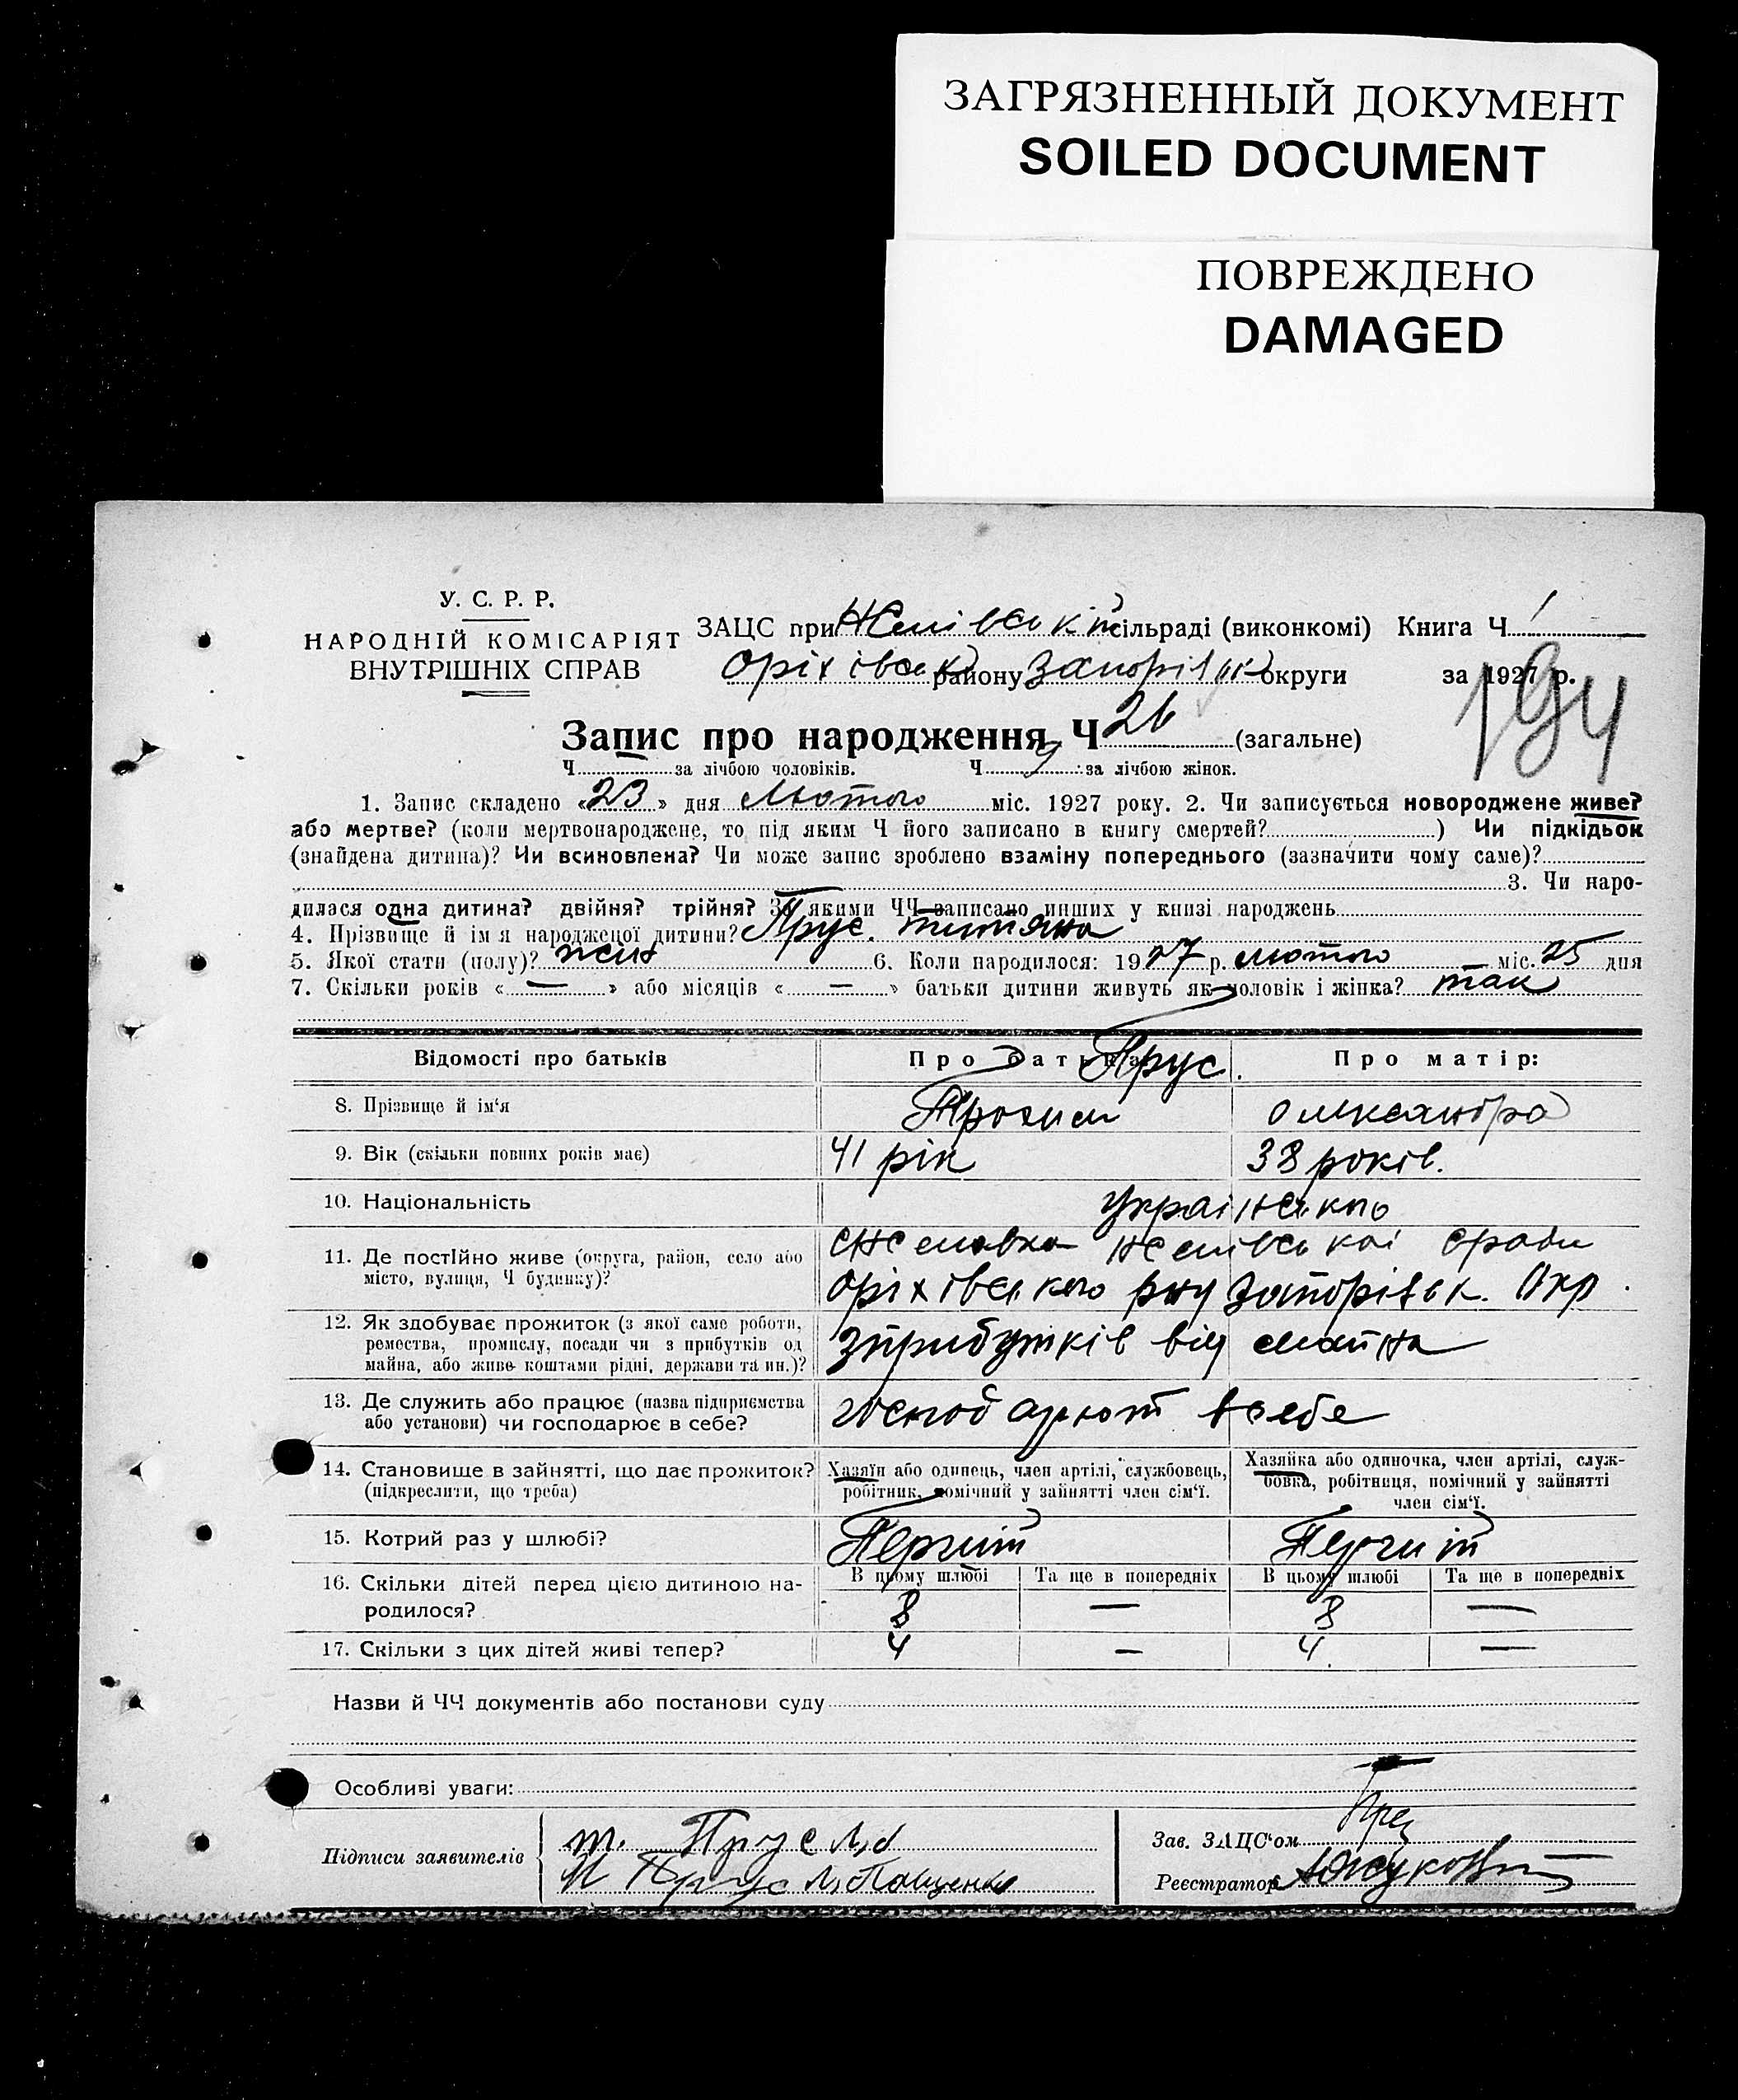 ЗАГРЯЗНЕННЫЙ ДОКУМЕНТ
SOILED DOCUMENT
ПОВРЕЖДЕНО
DAMAGED
У. С. Р. Р.
НАРОДНІЙ КОМІСАРІЯТ
ВНУТРІШНІХ СПРАВ
ЗАЦС при сільраді (виконкомі) Книга Ч. 1
Оріхівськ району Запорізьк округи за 1927 р.
194
Запис про народження Ч 26 (загальне)
Ч. за лічбою чоловіків. Ч. 9 за лічбою жінок.
1. Запис складено «23» дня Лютого міс. 1927 року. 2. Чи записується новороджене живе?
або мертве? (коли мертвонароджене, то під яким Ч його записано в книгу смертей? ) Чи підкідьок
(знайдена дитина)? Чи всиновлена? Чи може запис зроблено взаміну попереднього (зазначити чому саме)?
3. Чи наро-
дилася одна дитина? двійня? трійня? За якими ЧЧ записано инших у книзі народжень
4. Прізвище й імя народженої дитини? Прус.
5. Якої стати (полу)? жін 6. Коли народилося: 1927 р. лютого міс. 25 дня
7. Скільки років « — » або місяців « — » батьки дитини живуть як чоловік і жінка? так
Відомості про батьків Про батька: Прус. Про матір:
8. Прізвище й ім'я Трохим Олександра
9. Вік (скільки повних років має) 41 рік 38 років.
10. Національність українського
11. Де постійно живе (округа, район, село або
місто, вулиця, Ч будинку)?
Оріхівського р-ну Запорізьк. Окр.
12. Як здобуває прожиток (з якої саме роботи,
ремества, промислу, посади чи з прибутків од
майна, або живе коштами рідні, держави та ин.)?
зприбутків від майна
13. Де служить або працює (назва підприємства
або установи) чи господарює в себе?
господарюют в себе
14. Становище в зайнятті, що дає прожиток?
(підкреслити, що треба)
Хазяїн або одинець, член артілі, службовець,
робітник, помічний у зайнятті член сім'ї.
Хазяйка або одиночка, член артілі, служ-
бовка, робітниця, помічний у зайнятті
член сім'ї.
15. Котрий раз у шлюбі? Первий Первий
16. Скільки дітей перед цією дитиною на-
родилося?
В цьому шлюбі Та ще в попередніх В цьому шлюбі Та ще в попередніх
8 — 8 —
17. Скільки з цих дітей живі тепер? 4 — 4 —
Назви й ЧЧ документів або постанови суду
Особливі уваги:
Підписи заявителів
т. Прус
Прус Пащенко
Зав. ЗАЦС'ом
Реєстратор